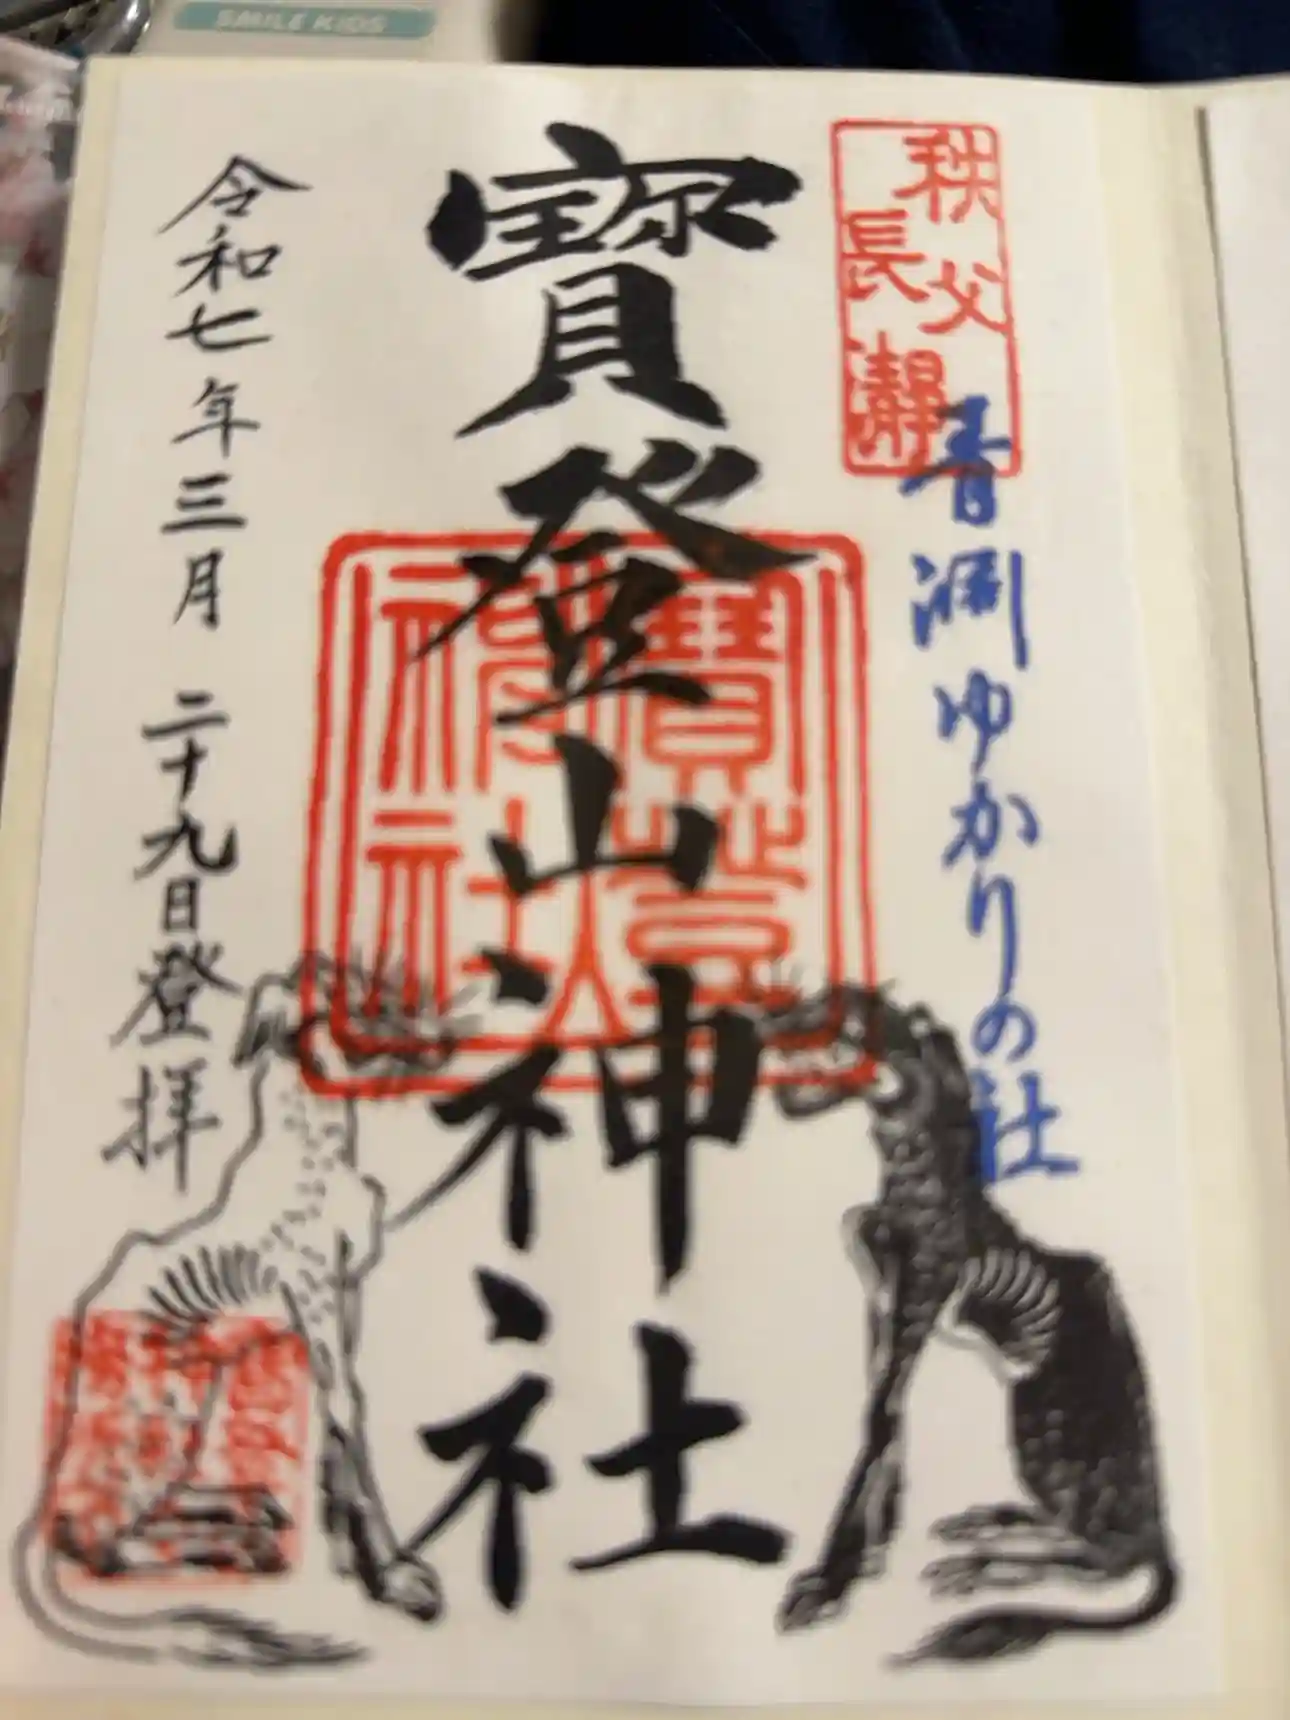 SMILE KIDS
秩父
長瀞
青淵ゆかりの社
寳登山神社
寳登山
神社
令和七年三月二十九日登拝